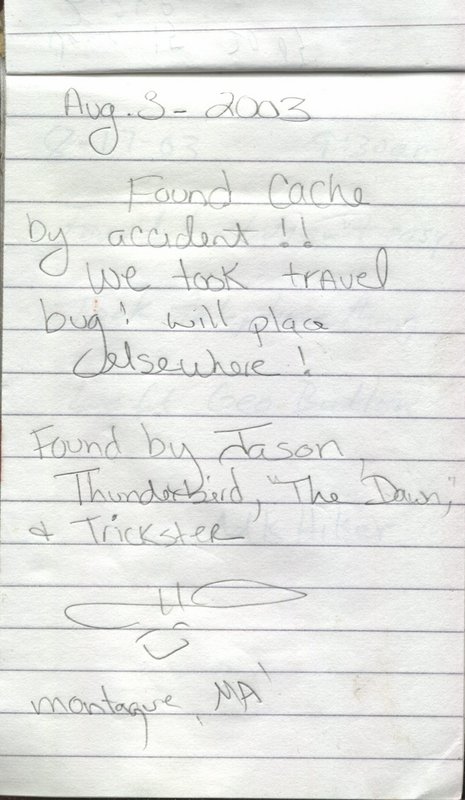 Aug. 3 - 2003
Found Cache
by accident !!
we took travel
bug! will place
elsewhere!
Found by Jason,
Thunderbird, "The Dawn,"
& Trickster
montague, MA